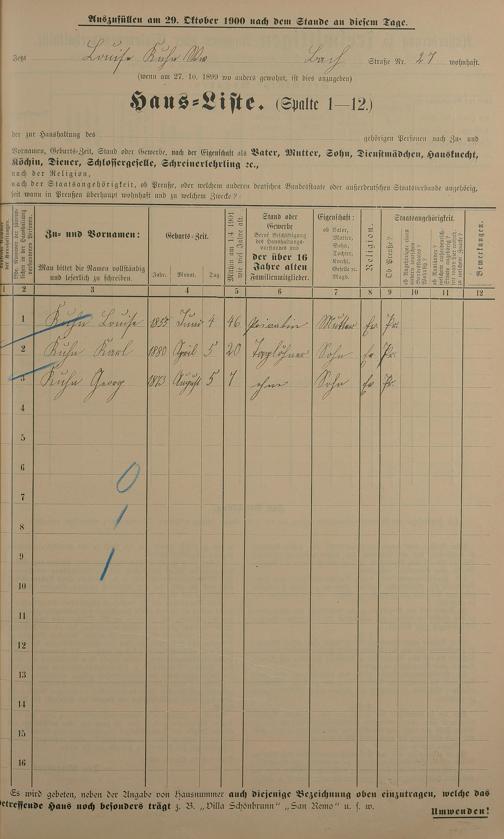 Auszufüllen am 29. Oktober 1900 nach dem Stande an diesem Tage.
Jetzt Louise Kuhn Ww Bach Straße Nr. 27 wohnhaft.
(wenn am 27. 10. 1899 wo anders gewohnt, ist dies anzugeben)
Haus-Liste. (Spalte 1—12.)
der zur Haushaltung des gehörigen Personen nach Zu- und
Vornamen, Geburts-Zeit, Stand oder Gewerbe, nach der Eigenschaft als Vater, Mutter, Sohn, Dienstmädchen, Hausknecht,
Köchin, Diener, Schlossergeselle, Schreinerlehrling ꝛc.,
nach der Religion,
nach der Staatsangehörigkeit, ob Preuße, oder welchem anderen deutschen Bundesstaate oder außerdeutschen Staatsverbande angehörig,
seit wann in Preußen überhaupt wohnhaft und zu welchem Zwecke?
Zu- und Vornamen:
Man bittet die Namen vollständig
und leserlich zu schreiben.
Geburts-Zeit.
Jahr. Monat. Tag.
Mithin am 1. 4. 1901
wie viel Jahre alt.
Stand oder
Gewerbe
der über 16
Jahre alten
Familienmitglieder.
Eigenschaft:
ob Vater,
Mutter,
Sohn,
Tochter,
Knecht,
Geselle ꝛc.
Magd.
Religion.
Staatsangehörigkeit.
Ob Preuße?
Bemerkungen.
1 2 3 4 5 6 7 8 9 10 11 12
1 Kuhn Louise Juni 4 46 Privatin Mutter ev Pr.
2 Kuhn Karl 1880 April 5 20 Taglöhner Sohn ev Pr.
3 Kuhn Georg August 5 7 ohne Sohn ev Pr.
4
5
6
7
8
9
10
11
12
13
14
15
16
0
1
1
Es wird gebeten, neben der Angabe von Hausnummer auch diejenige Bezeichnung oben einzutragen, welche das
betreffende Haus noch besonders trägt z. B. „Villa Schönbrunn" „San Remo" u. s. w.
Umwenden!